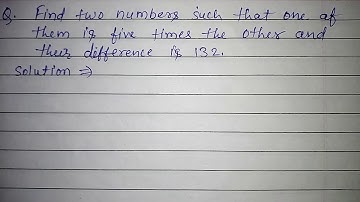 Q. Find two numbers such that one of
them is five times the other and
their difference is 132.
Solution ⇒